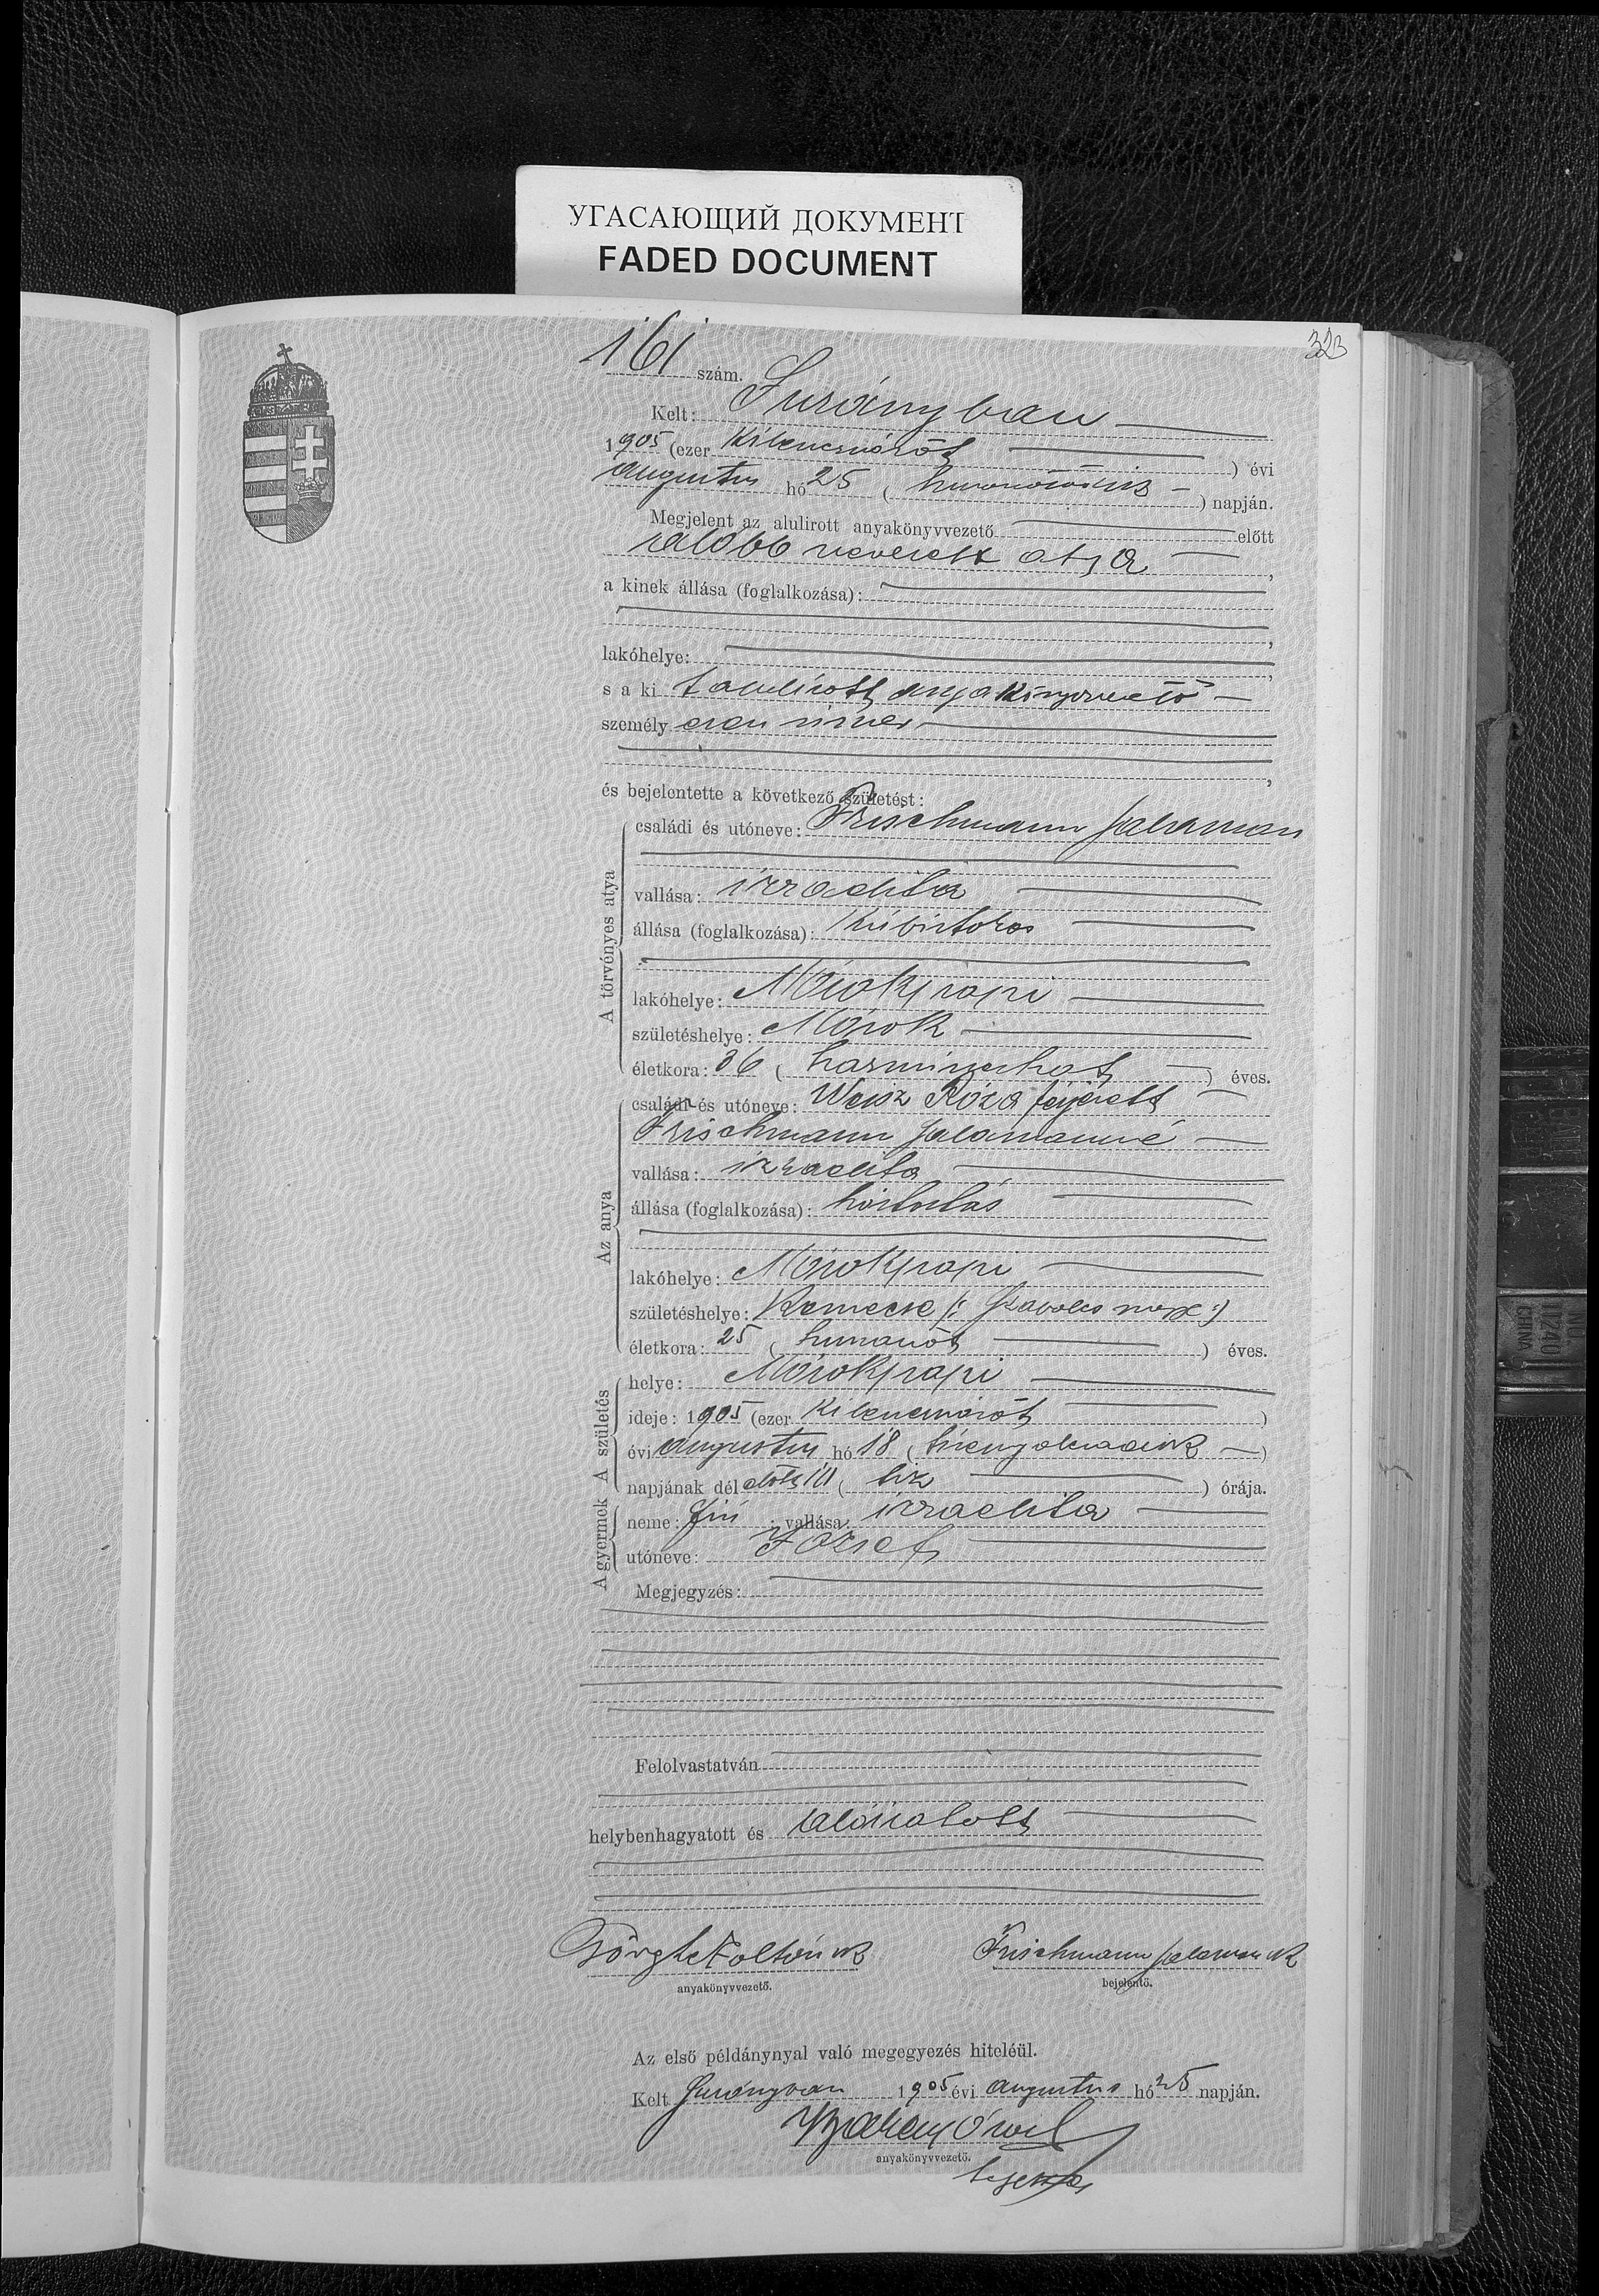 УГАСАЮЩИЙ ДОКУМЕНТ
FADED DOCUMENT
323
161 szám.
Kelt: Surányban
1905 (ezer kilencszázöt) évi
augusztus hó 25 (huszonötödik) napján.
Megjelent az alulirott anyakönyvvezető előtt
alább nevezett atya,
a kinek állása (foglalkozása):
lakóhelye:
s a ki alulírott anyakönyvvezető
személy
és bejelentette a következő születést:
A törvényes atya
családi és utóneve: Frischmann Salamon
vallása: izraelita
állása (foglalkozása): kisbirtokos
lakóhelye: Márokpapi
születéshelye: Márok
életkora: 36 (harminczhat) éves.
Az anya
családi és utóneve: Weisz Róza férjezett
Frischmann Salamonné
vallása: izraelita
állása (foglalkozása): háztartás
lakóhelye: Márokpapi
születéshelye: Kemecse /: Szabolcs megye :/
életkora: 25 (huszonöt) éves.
A születés
helye: Márokpapi
ideje: 1905 (ezer kilencszázöt)
évi augusztus hó 18 (tizennyolczadik)
napjának dél előtt 10 (tiz) órája.
A gyermek
neme: fiú; vallása: izraelita
utóneve: József
Megjegyzés:
Felolvastatván
helybenhagyatott és aláíratott
Zoltán sk Frischmann Salamon sk
anyakönyvvezető. bejelentő.
Az első példánynyal való megegyezés hiteléül.
Kelt Surányban 1905 évi augusztus hó 25 napján.
anyakönyvvezető.